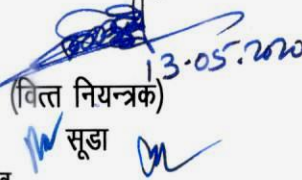 13.05.2020
(वित्त नियन्त्रक)
सूडा